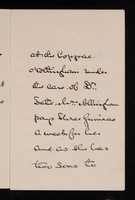 at the Coppice
Nottingham under
the care of Dr.
Tate. Mr. Allingham
pays three guineas
a week for her
and as she has
two sons to